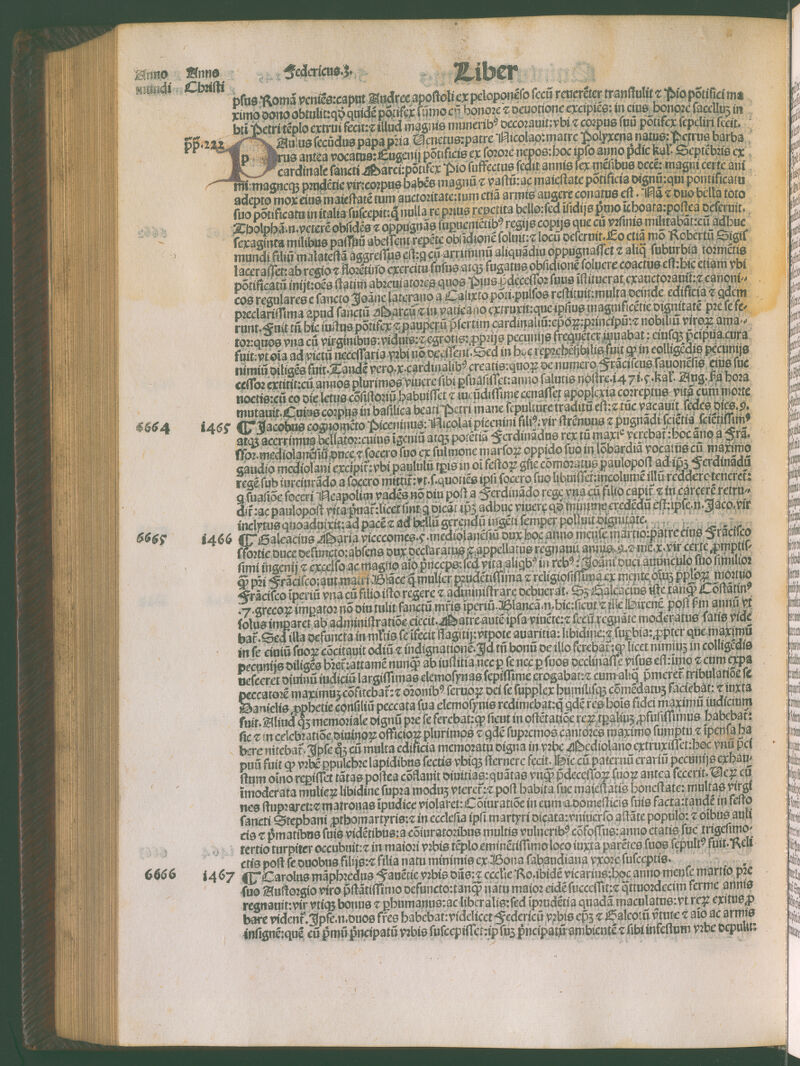 Anno Anno Federicus.3. Liber
mundi Christi
psus Romā veniēs:caput Andree apostoli ex peloponēso secū reuerēter transtulit ⁊ Pio pōtifici ma
ximo dono obtulit:qď quidē pōtifex sūmo cū honore ⁊ deuotione excipiēs: in eius honore sacellū in
bti Petri tēplo extrui fecit:⁊ illud magnis muneribꝰ decorauit:vbi ⁊ corpus suū pōtifex sepeliri fecit.
pp.222. PAulus secūdus papa pria Uenetus:patre Nicolao:matre Polyxena natus: Petrus barba
rus antea vocatus: Eugenij pōtificis ex sorore nepos: hoc ipso anno pridie kal. Septēbris ex
cardinale sancti Marci:pōtifex Pio suffectus sedit annis sex mēsibus decē: magni certe ani
mi:magneqꝫ prudētie vir:corpus habēs magnū ⁊ vastū:ac maiestate pōtificia dignū:qui pontificatu
adepto mox eius maiestatē tum auctoritate:tum etiā armis augere conatus est. Nā ⁊ duo bella toto
suo pōtificatu in italia suscepit:
Tholphā.n.veterē obsidēs ⁊ oppugnās
sexaginta milibus passuū abessent repēte obsidionē soluit:⁊ locū deseruit. Eo etiā mō Robertū Sigis
mundi filiū malatestā aggressus est:qꝫ cū arriminū aliquādiu oppugnasset ⁊ aliqꝫ suburbia tormētis
lacerasset:ab regio ⁊ florētino exercitu fusus atqꝫ fugatus obsidionē soluere coactus est:hic etiam vbi
pōtificatū inijt:oēs statim abreuiatores quos Pius p̄decessor suus īstituerat exauctorauit:⁊ canoni-
cos regulares e sancto Joāne laterano a Calixto pōti.pulsos restituit:multa deinde edificia ⁊ qdem
preclarissima apud sanctū Marcū ⁊ in vaticano extruxit:que ipsius magnificētie dignitatē pre se fe-
runt. Fuit tn̄ hic iustus pōtifex ⁊ pauperū p̄sertim cardinaliū:ep̄oꝝ:principū:⁊ nobiliū viroꝝ ama-
tor:quos vna cū virginibus:viduis:⁊ egrotis:proprijs pecunijs frequēter iuuabat: eiusqꝫ p̄cipua cura
fuit:vt oīa ad victū necessaria vrbi nō deessent. Sed in hoc reprehēsibilis fuit qꝙ in colligēdis pecunijs
nimiū diligēs fuit. Tandē vero.x.cardinalibꝰ creatis:quoꝝ de numero Frāciscus sauonēsis eius suc
cessor extitit:cū annos plurimos viuere sibi p̄suasisset:anno salutis nostre.1471.5.kal. Aug. hora
noctis:cū eo die letus cōsistoriū habuisset ⁊ iucūdissime cenasset apoplexia correptus vitā cum morte
mutauit. Cuius corpus in basilica beati Petri mane sepulture traditū est:⁊ tūc vacauit sedes dies.9.
6664 1465 ¶ Jacobus cognomēto Piceninus: Nicolai picenini filiꝰ: vir strēnuus ⁊ pugnādi sciētia sciētissimꝰ
atqꝫ acerrimus bellator:cuius īgeniū atqꝫ potētiā Ferdinādus rex tū maxīe verebat̄:hoc āno a Frā.
sfor.mediolanēsiū duce ⁊ socero suo ex sulmone marsoꝝ oppido suo in lōbardiā vocatus cū maximo
gaudio mediolani excipit̄:vbi paululū tp̄is in oī festoꝝ gn̄e cōmoratus paulopost ad ip̄ꝫ Ferdinādū
regē sub iureiurādo a socero mittit̄: vt.s.quoties ipsi socero suo libuisset:incolumē illū reddere teneret̄:
q suasiōe soceri Neapolim vadēs nō diu post a Ferdinādo rege vna cū filio capit̄ ⁊ in carcerē retru-
dit̄:ac paulopost vita p̄uat̄:licet sint q dicāt ip̄ꝫ adhuc viuere qď minime credēdū est:ipse.n. Jaco.vir
inclytus quoad vixit:ad pacē ⁊ ad bellū gerendū ingēti semper polluit dignitate.
6665 1466 ¶ Galeacius Maria vicecomes.5.mediolanēsiū dux hoc anno mense martio:patre eius Frācisco
sfortie duce defuncto:absens dux declaratus ⁊ appellatus regnauit annis.9.⁊ mē.x.vir certe promptis-
simi ingenij ⁊ excelso ac magno aīo p̄nceps:sed vita aliqbꝰ in rebꝰ: Joāni duci auunculo suo similior
qꝫ pri Frācisco:aut matri Blāce q mulier prudētissima ⁊ religiosissima ex mente oīuꝫ pploꝝ mortuo
Frācisco īperiū vna cū filio isto regere ⁊ administrare debuerat. Sꝫ Galeacius iste tanqꝫ Cōstātinꝰ
.7.grecoꝝ impator nō diu tulit sanctū mr̄is īperiū. Blancā.n.hic:sicut ⁊ ille Hirenē post annū vt
solus imparet ab administratiōe eiecit. Matre autē ipsa viuēte:⁊ secū regnāte moderatus satis vide
bat̄. Sed illa defuncta in multis se īfecit flagitijs:vtpote auaritia: libidine:⁊ supbia: propter que maximū
in se ciuiū suoꝝ cōcitauit odiū ⁊ indignationē. Id tn̄ bonū de illo ferebat̄:qꝙ licet nimium in colligēdis
pecunijs diligēs eēt:attamē nunqꝫ ab iustitia nec p se nec p suos declinasse visus est:imo ⁊ cum expa
uesceret diuinū iudiciū largissimas elemosynas sepissime erogabat:⁊ cum aliqꝫ p̄meret̄ tribulatiōe se
peccatorē maximuꝫ cōfitebat̄:⁊ orōnibꝰ seruoꝝ dei se supplex humilisqꝫ cōmēdatuꝫ faciebat: ⁊ iuxta
Danielis prophetie consiliū peccata sua elemosynis redimebat:q qdē res hois fidei maximū iudicium
fuit. Aliud qꝫ memoriale dignū pre se ferebat:qꝙ sicut in ostētatiōe profusissimus habebat̄:
sic ⁊ in celebratiōe diuinoꝝ officioꝝ plurimos ⁊ qdē supremos cantores maximo sumptu ⁊ īpensa ha
bere nitebat̄. Ipse qꝫ cū multa edificia memoratu digna in vrbe Mediolano extruxisset:hoc vnū p̄ci
puū fuit qꝙ vrbē ppulchre lapidibus sectis vbiqꝫ sternere fecit. Hic cū paternū erariū pecunijs exhau-
stum oīno repisset tātas postea cōflauit diuitias:quātas vnqꝫ p̄decessoꝝ suoꝝ antea fecerit. Ueꝝ cū
īmoderata mulieꝝ libidine supra moduꝫ vteret̄:⁊ post habita sue maiestatis honestate: multas virgi
nes stupraret:⁊ matronas īpudice violaret: Cōiuratiōe in eum a domesticis suis facta:tandē in festo
sancti Stephani prothomartyris:⁊ in ecclesia ipsi martyri dicata:vniuerso astāte populo: ⁊ oībus auli
cis ⁊ p̄matibus suis vidētibus:a cōiuratoribus multis vulneribꝰ cōfossus:anno etatis sue trigesimo-
tertio turpiter occubuit:⁊ in maiori vrbis tēplo eminētissimo loco iuxta parētes suos sepultꝰ fuit. Reli
ctis post se duobus filijs:⁊ filia natu minimis ex Bona sabaudiana vxore susceptis.
6666 1467 ¶ Carolus māphredus Fauētie vrbis dn̄s:⁊ ecclie Ro.ibidē vicarius:hoc anno mense martio pre
suo Austorgio viro p̄stātissimo defuncto:tanqꝫ natu maior eidē successit:⁊ qttuordecim ferme annis
regnauit:vir vtiqꝫ bonus ⁊ phumanus:ac liberalis:sed īprudētia quadā maculatus:vt reꝝ exitus p
bare vident̄. Ipse.n.duos fr̄es habebat:videlicet Federicū vrbis ep̄ꝫ ⁊ Galeotū v̄tute ⁊ aīo ac armis
insignē:quē cū p̄mū p̄ncipatū vrbis suscepisset:ipsuꝫ p̄ncipatū ambientē ⁊ sibi infestum vrbe depulit: